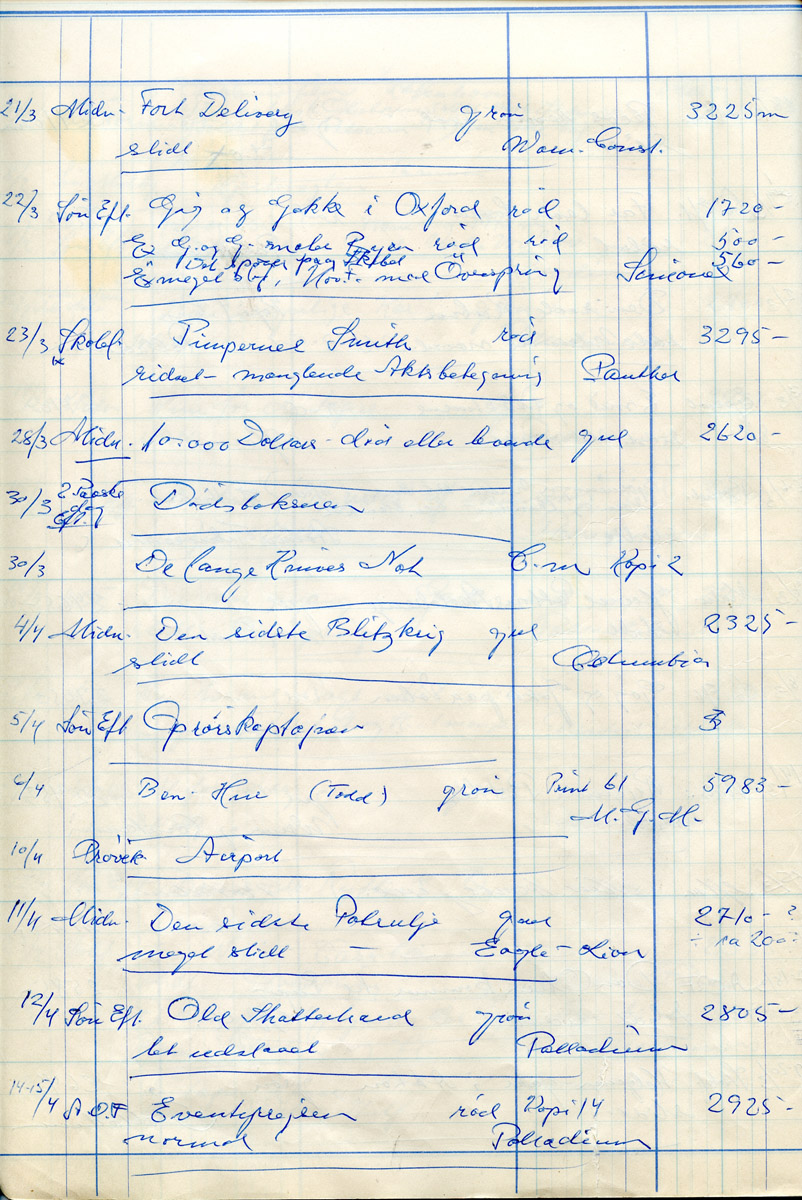 21/3 Midn. Fort Delivery grøn 3225 m
slidt Warn. Const.
22/3 Søn Eft. Gøg og Gokke i Oxford rød 1720 -
Ex G. og G. rød rød 500 -
Det spøger paa 560 -
Ex meget slidt, med Overspring
23/3 Skolef. Pimpernel Smith rød 3295 -
ridset - manglende Aktsbetegning Panther
28/3 Midn. 10.000 Dollars - død eller levende gul 2620 -
30/3 2. Paaske dag Eft. Dødsbokseren
30/3 De lange Knives Nat C.m Kopi 2
4/4 Midn. Den sidste Blitzkrig gul 2325 -
slidt Columbia
5/4 Søn Eft Oprørskaptajnen
6/4 Ben Hur (Todd) grøn Print 61 5983 -
M.G.M.
10/4 Prøvek. Airport
11/4 Midn. Den sidste Patrulje gul 2710 - ?
meget slidt — Eagle-Lion ÷ ca 200 ?
12/4 Søn Eft. Old Shatterhand grøn 2805 -
let udslaaet Palladium
14-15/4 A.O.F Eventyrrejsen rød Kopi 14 2925 -
normal Palladium